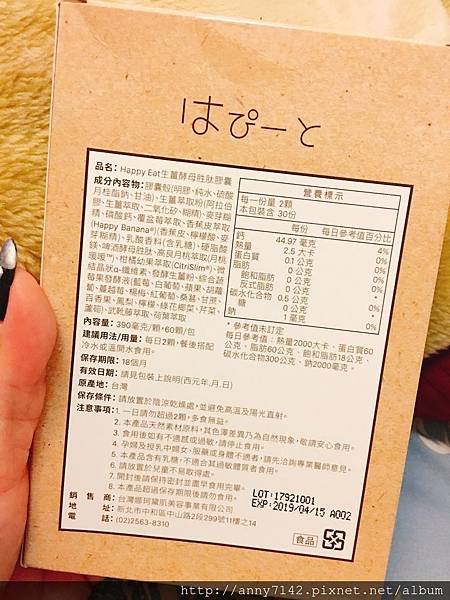 はぴーと
品名：Happy Eat生薑酵母胜肽膠囊
成分內容物：膠囊殼(明膠、純水、硫酸
月桂酯鈉、甘油)、生薑萃取粉(阿拉伯
膠、生薑萃取、二氧化矽、糊精)、麥芽糊
精、磷酸鈣、覆盆莓萃取、香蕉皮萃取
(Happy Banana®)(香蕉皮、檸檬酸、麥
芽糊精)、乳酸香料(含乳糖)、硬脂酸
鎂、啤酒酵母胜肽、高良月桃萃取(月桃
暖暖™)、柑橘幼果萃取(CitriSlim®)、微
結晶狀α-纖維素、發酵生薑粉、綜合蔬
果發酵液(藍莓、白葡萄、蘋果、胡蘿
蔔、蔓越莓、楊梅、紅葡萄、桑葚、甘蔗、
百香果、鳳梨、檸檬、綠花椰菜、芹菜、
蘆筍)、武靴藤萃取、荷葉萃取
內容量：390毫克/顆，60顆/包
建議用法/用量：每日2顆，餐後搭配
冷水或溫開水食用。
保存期限：18個月
有效日期：請見包裝上說明(西元年.月.日)
原產地：台灣
保存條件：請放置於陰涼乾燥處，並避免高溫及陽光直射。
注意事項：1. 一日請勿超過2顆，多食無益。
2. 本產品天然素材原料，其色澤差異乃為自然現象，敬請安心食用。
3. 食用後如有不適感或過敏，請停止食用。
4. 孕婦及授乳中婦女、服藥或身體不適者，請先洽詢專業醫師意見。
5. 本產品含有乳糖，不適合其過敏體質者食用。
6. 請放置於兒童不易取得處。
7. 開封後請保持密封並盡早食用完畢。
8. 本產品超過保存期限後請勿食用。
營養標示
每一份量 2顆
本包裝含 30份
每份 每日參考值百分比
鈣 44.97 毫克 4%
熱量 2.5 大卡 0%
蛋白質 0.1 公克 0%
脂肪 0 公克 0%
飽和脂肪 0 公克 0%
反式脂肪 0 公克 *
碳水化合物 0.5 公克 0%
糖 0 公克 *
鈉 1 毫克 0%
* 參考值未訂定
每日參考值：熱量2000大卡、蛋白質60
公克、脂肪60公克、飽和脂肪18公克、
碳水化合物300公克、鈉2000毫克。
LOT:17921001
EXP:2019/04/15 A002
銷售商：台灣娜阿黛肌美容事業有限公司
地址：新北市中和區中山路2段299號11樓之14
電話：(02)2563-8310
食品
http://anny7142.pixnet.net/album